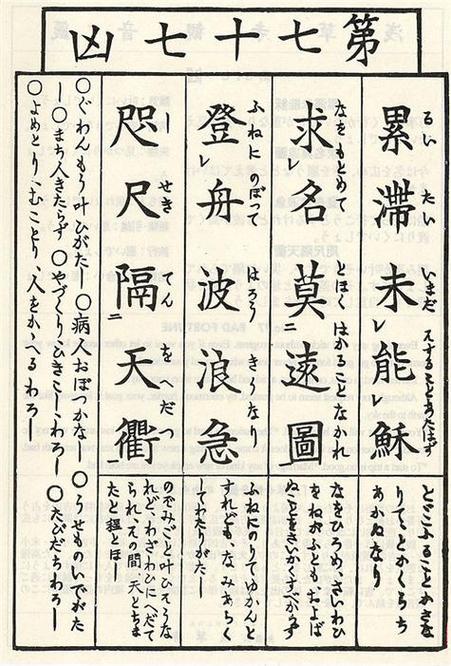 第七十七凶
累滞未レ能レ穌
るい たい いまだ
とどこふることかさな
りて、とかくらち
あかぬなり
求レ名莫二遠圖
なをもとめて とほくはかることなかれ
なをひろめ、さいわひ
をねがふとも、およば
ぬことをさいかくすべからず
登レ舟波浪急
ふねにのぼつて はろう きなり
ふねにのりてゆかんと
すれども、なみあらく
してわたりがたし
咫尺隔二天衢
しせき てんをへだつ
のぞみごと叶ひそうな
れど、わざわひにへだて
られ、その間、天とちま
たと程とほし
○ぐわんもう叶ひがたし○病人おぼつかなし○うせものいでがた
し○まち人きたらず○やづくり、ひきこしわろし○たびだちわろし
○よめとり、むことり、人をかへるわろし